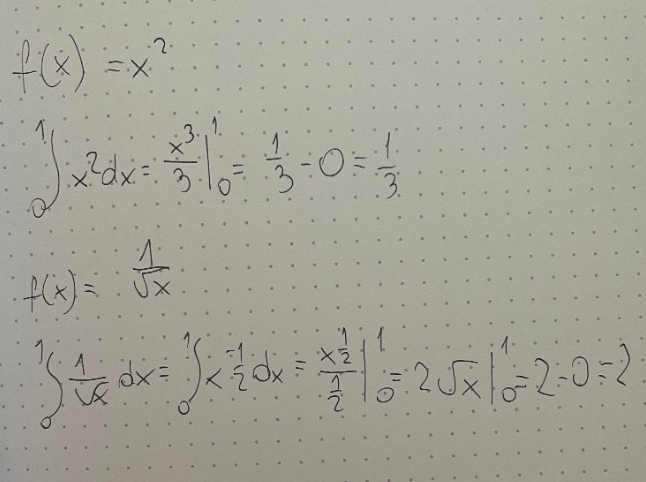 f(x) = x²
∫₀¹ x² dx = x³/3 |₀¹ = 1/3 - 0 = 1/3
f(x) = 1/√x
∫₀¹ 1/√x dx = ∫₀¹ x^(-1/2) dx = x^(1/2)/(1/2) |₀¹ = 2√x |₀¹ = 2 - 0 = 2